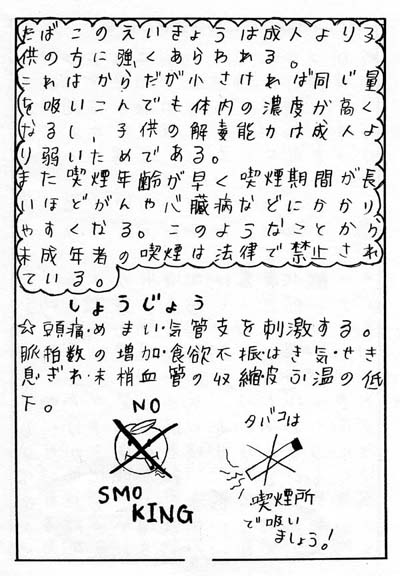 たばこのえいきょうは成人より子
供の方に強くあらわれる。
これはからだが小さければ同じ量
を吸いこんでも体内の濃度が高く
なるし、子供の解毒能力は成人よ
り弱いためである。
また喫煙年齢が早く喫煙期間が長
いほどがんや心臓病などにかかり
やすくなる。このようなことから
未成年者の喫煙は法律で禁止され
ている。
しょうじょう
☆頭痛・めまい・気管支を刺激する。
脈拍数の増加・食欲不振・はき気・せき
息ぎれ・末梢血管の収縮・皮ふ温の低
下。
NO
SMO
KING
タバコは
喫煙所
で吸い
ましょう!